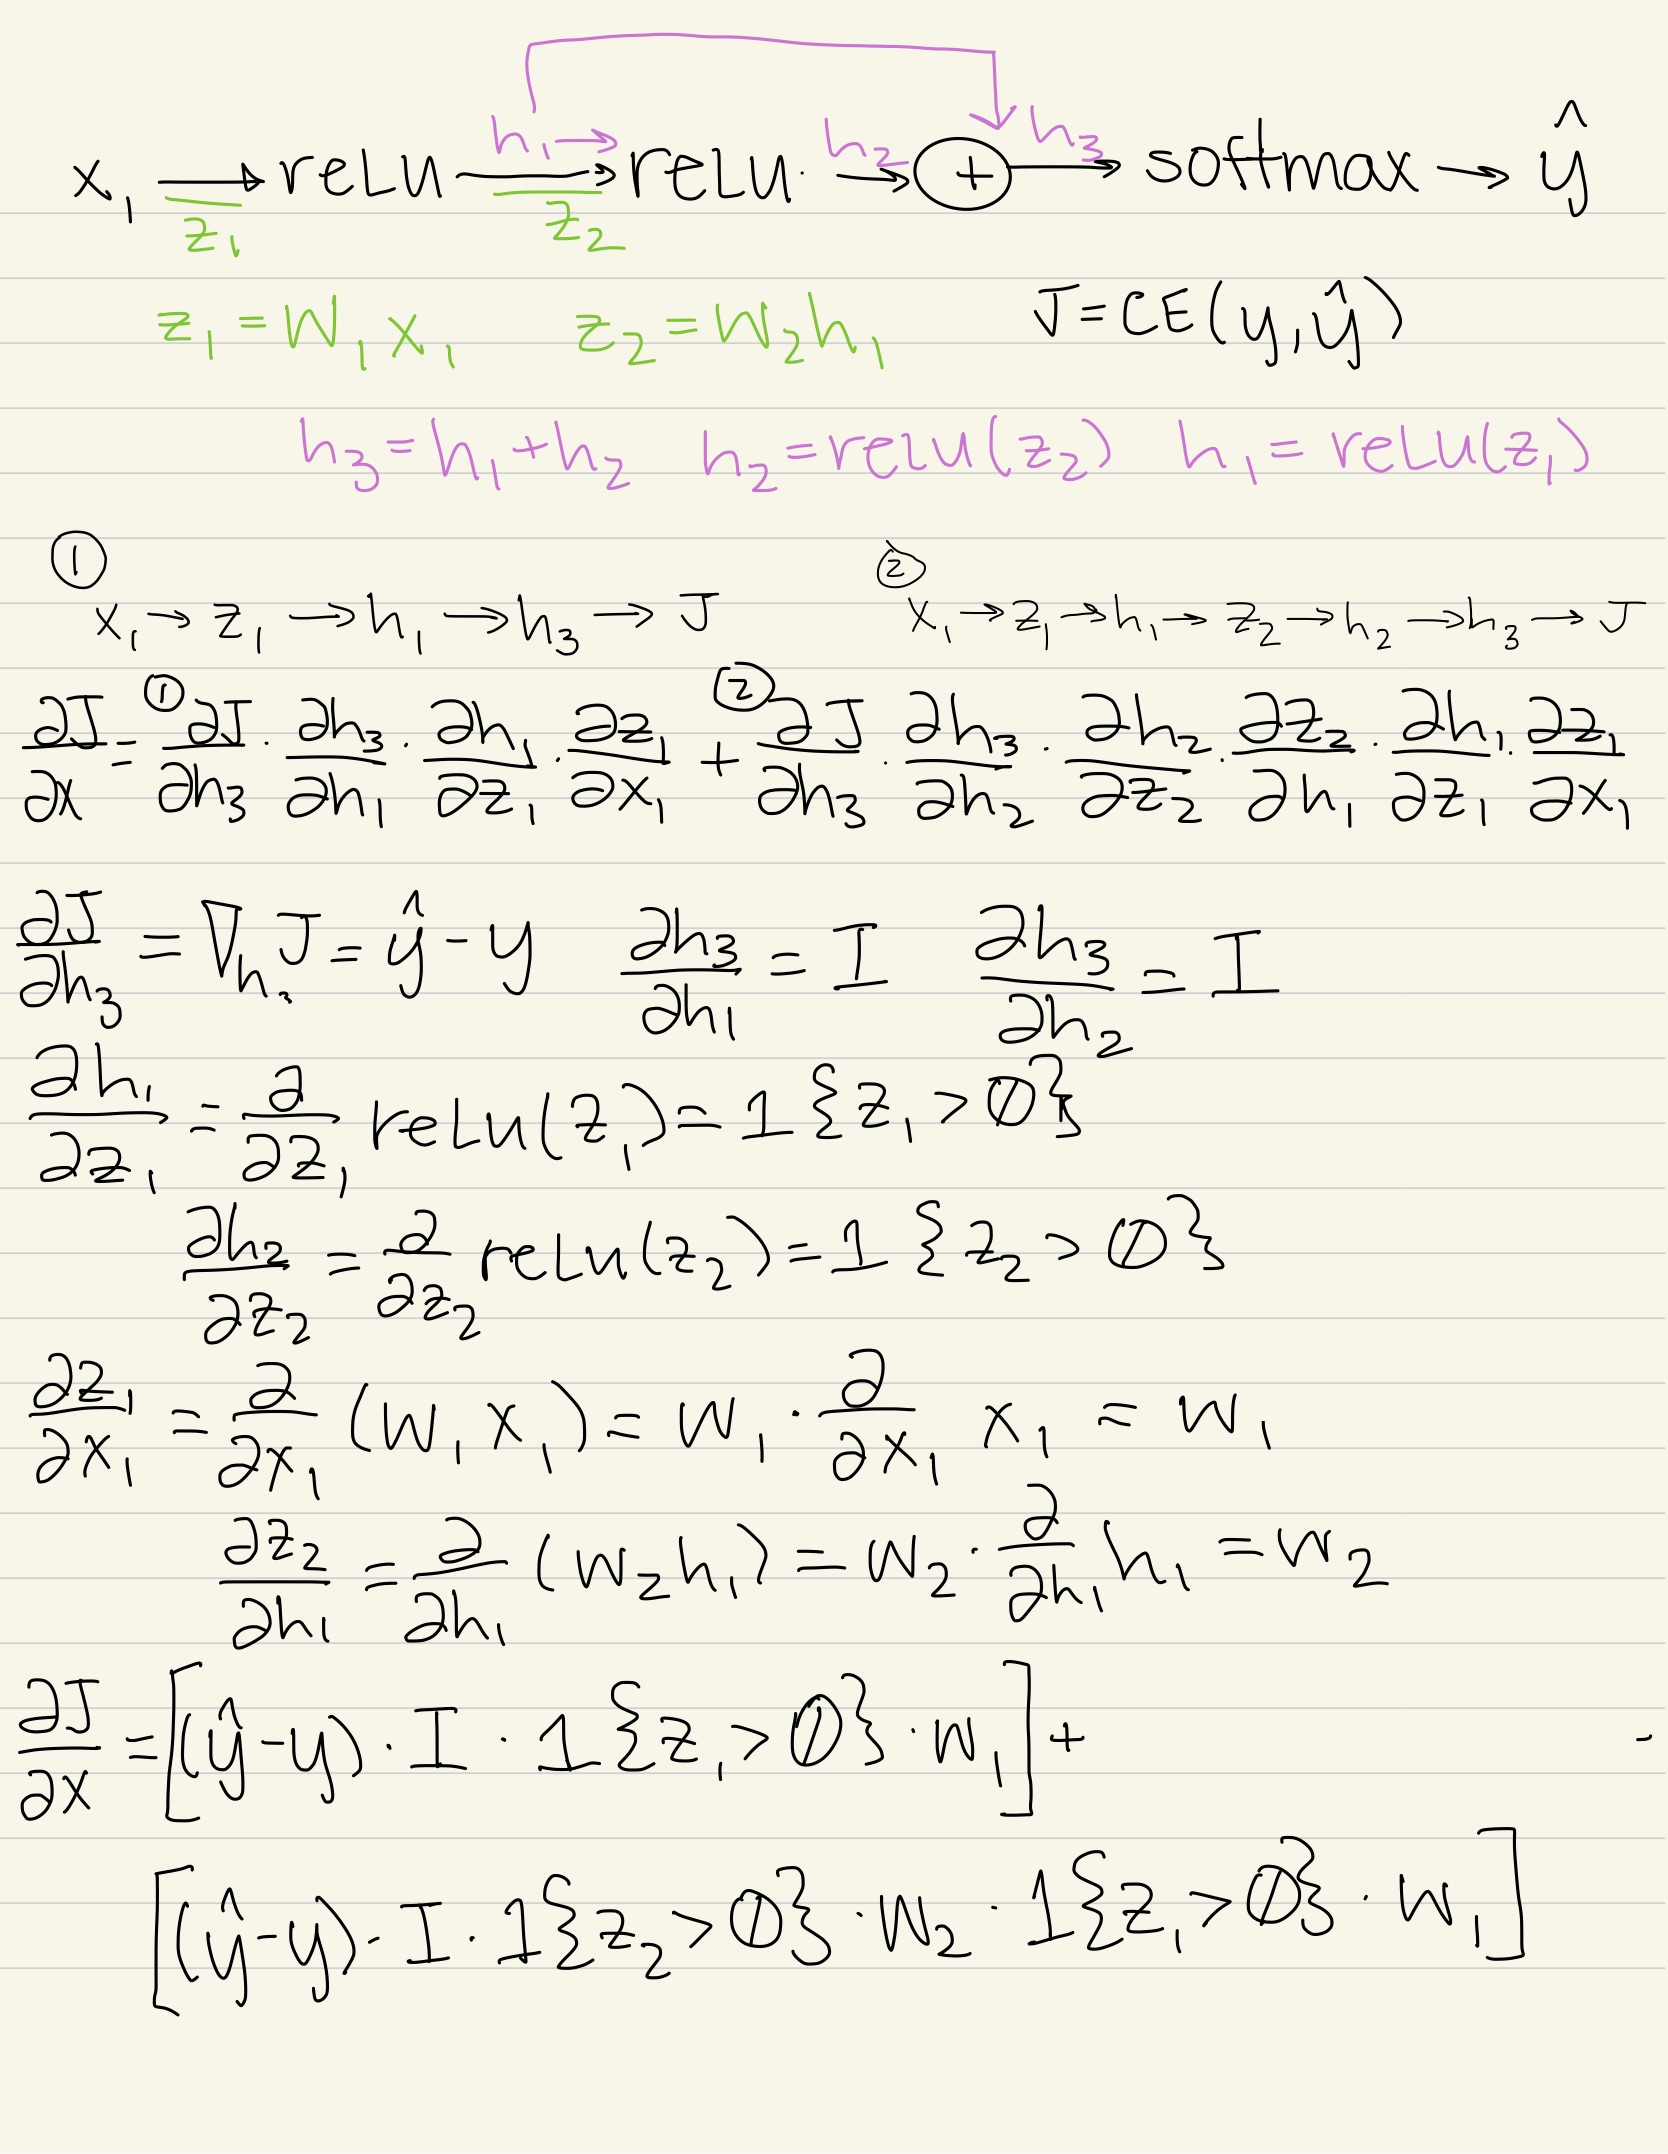 x₁ → reLU h₁ → reLU. h₂ → + → h₃ softmax → ŷ
z₁ z₂
z₁ = W₁x₁ z₂ = W₂h₁ J = CE(y, ŷ)
h₃ = h₁ + h₂ h₂ = relu(z₂) h₁ = reLU(z₁)
① ②
x₁ → z₁ → h₁ → h₃ → J x₁ → z₁ → h₁ → z₂ → h₂ → h₃ → J
∂J/∂x = ① ∂J/∂h₃ · ∂h₃/∂h₁ · ∂h₁/∂z₁ · ∂z₁/∂x₁ + ② ∂J/∂h₃ · ∂h₃/∂h₂ · ∂h₂/∂z₂ · ∂z₂/∂h₁ · ∂h₁/∂z₁ · ∂z₁/∂x₁
∂J/∂h₃ = ∇h₃ J = ŷ - y ∂h₃/∂h₁ = I ∂h₃/∂h₂ = I
∂h₁/∂z₁ = ∂/∂z₁ reLu(z₁) = 1{z₁ > 0}
∂h₂/∂z₂ = ∂/∂z₂ reLu(z₂) = 1{z₂ > 0}
∂z₁/∂x₁ = ∂/∂x₁ (W₁x₁) = W₁ · ∂/∂x₁ x₁ = W₁
∂z₂/∂h₁ = ∂/∂h₁ (W₂h₁) = W₂ · ∂/∂h₁ h₁ = W₂
∂J/∂x = [(ŷ-y) · I · 1{z₁ > 0} · W₁] + -
[(ŷ-y) · I · 1{z₂ > 0} · W₂ · 1{z₁ > 0} · W₁]